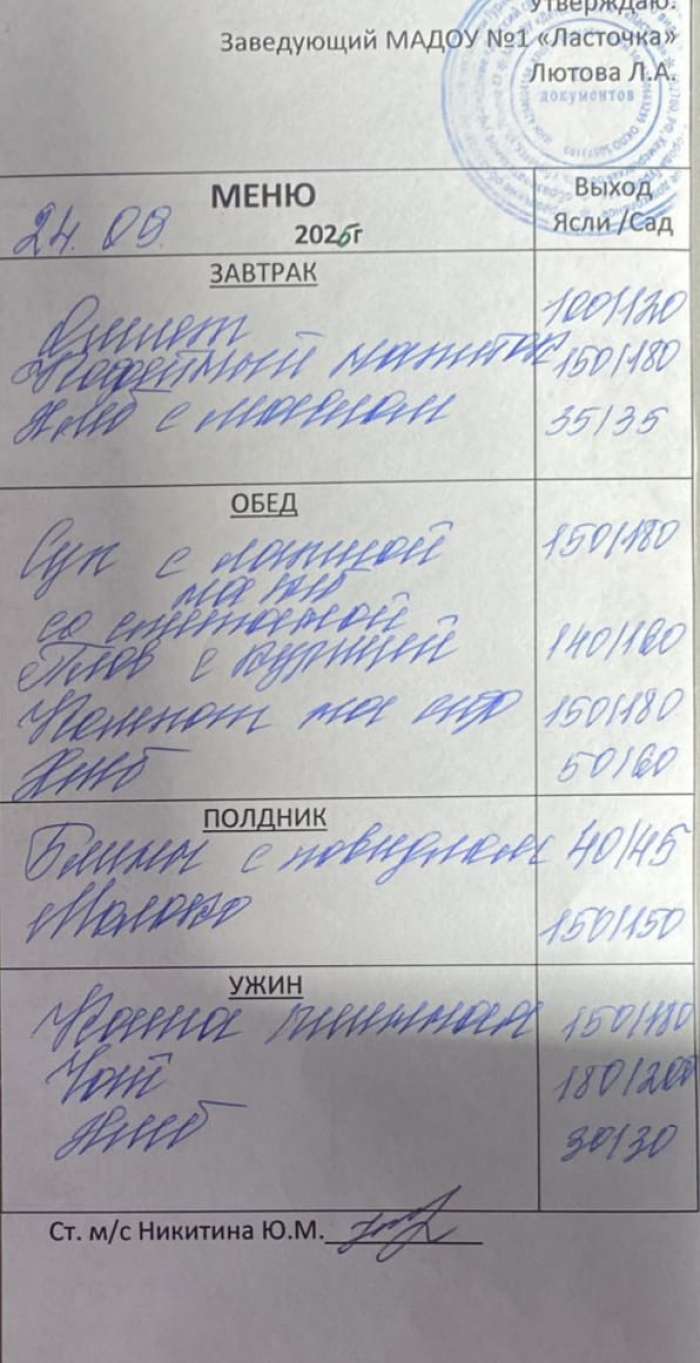 Утверждаю:
Заведующий МАДОУ №1 «Ласточка»
Лютова Л.А.
документов
24.09. МЕНЮ 2025г
Выход
Ясли /Сад
ЗАВТРАК
Омлет 100/120
Кофейный напиток 150/180
Хлеб с маслом 35/35
ОБЕД
Суп с лапшой 150/180
на к/б
со сметаной
Плов с курицей 140/160
Компот из с/ф 150/180
Хлеб 50/60
ПОЛДНИК
Блины с повидлом 40/45
Молоко 150/150
УЖИН
Каша пшенная 150/180
Чай 180/200
Хлеб 30/30
Ст. м/с Никитина Ю.М.